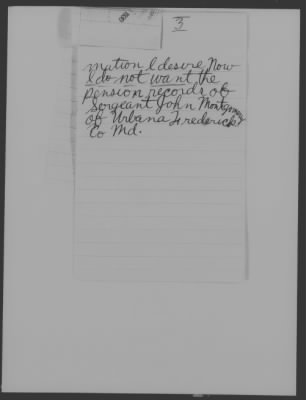 3
mation I desire, Now
I do not want the
pension records of
Sergeant John Montgomery
of Urbana Frederick
Co Md.